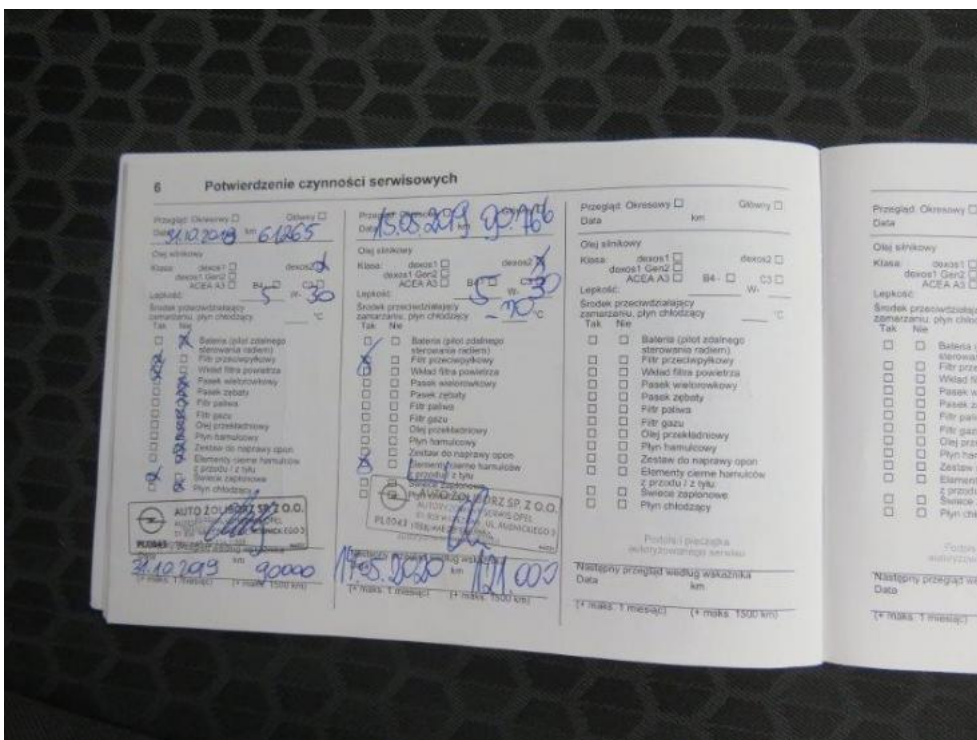 6 Potwierdzenie czynności serwisowych
Przegląd: Okresowy Główny
Data 31.10.2018 km 61265
Olej silnikowy
Klasa: dexos1 dexos2
dexos1 Gen2
ACEA A3 B4- C3
Lepkość: 5 W- 30
Środek przeciwdziałający
zamarzaniu, płyn chłodzący °C
Tak Nie
Bateria (pilot zdalnego
sterowania radiem)
Filtr przeciwpyłkowy
Wkład filtra powietrza
Pasek wielorowkowy
Pasek zębaty
Filtr paliwa
Filtr gazu
Olej przekładniowy
Płyn hamulcowy
Zestaw do naprawy opon
Elementy cierne hamulców
z przodu / z tyłu
Świece zapłonowe
Płyn chłodzący
AUTO ŻOLIBORZ SP. Z O.O.
PL0043
31.10.2019 km 90000
(+ maks. 1 miesiąc) (+ maks. 1500 km)
Data 15.05.2019 km 90.766
Olej silnikowy
Klasa: dexos1 dexos2
dexos1 Gen2
ACEA A3 B4- C3
Lepkość: 5 W- 30
Środek przeciwdziałający
zamarzaniu, płyn chłodzący °C
Tak Nie
Bateria (pilot zdalnego
sterowania radiem)
Filtr przeciwpyłkowy
Wkład filtra powietrza
Pasek wielorowkowy
Pasek zębaty
Filtr paliwa
Filtr gazu
Olej przekładniowy
Płyn hamulcowy
Zestaw do naprawy opon
Elementy cierne hamulców
z przodu / z tyłu
Świece zapłonowe
AUTO ŻOLIBORZ SP. Z O.O.
PL0043
Następny przegląd według wskaźnika
05.2020 km 121 000
(+ maks. 1 miesiąc) (+ maks. 1500 km)
Przegląd: Okresowy Główny
Data km
Olej silnikowy
Klasa: dexos1 dexos2
dexos1 Gen2
ACEA A3 B4- C3
Lepkość: W-
Środek przeciwdziałający
zamarzaniu, płyn chłodzący °C
Tak Nie
Bateria (pilot zdalnego
sterowania radiem)
Filtr przeciwpyłkowy
Wkład filtra powietrza
Pasek wielorowkowy
Pasek zębaty
Filtr paliwa
Filtr gazu
Olej przekładniowy
Płyn hamulcowy
Zestaw do naprawy opon
Elementy cierne hamulców
z przodu / z tyłu
Świece zapłonowe
Płyn chłodzący
Podpis i pieczątka
autoryzowanego serwisu
Następny przegląd według wskaźnika
Data km
(+ maks. 1 miesiąc) (+ maks. 1500 km)
Przegląd: Okresowy
Data
Olej silnikowy
Klasa: dexos1
dexos1 Gen2
ACEA A3
Lepkość:
Tak Nie
(+ maks. 1 miesiąc)